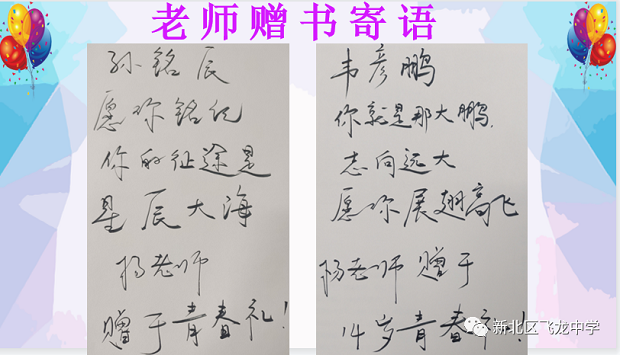 老师赠书寄语
孙铭辰
愿你铭记
你的征途是
星辰大海
杨老师
赠于青春礼！
韦彦鹏
你就是那大鹏，
志向远大
愿你展翅高飞
杨老师赠于
14岁青春礼！
新北区飞龙中学